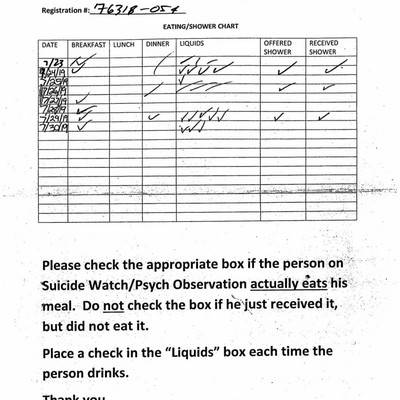 Registration #: 76318-054
EATING/SHOWER CHART
DATE BREAKFAST LUNCH DINNER LIQUIDS OFFERED SHOWER RECEIVED SHOWER
7/23 ✓
✓ ✓ ✓ ✓ ✓ ✓
✓
✓ ✓
7/27/19 ✓
7/28/19 ✓
7/29/19 ✓ ✓ ✓ ✓ ✓ ✓ ✓ ✓ ✓
7/30/19 ✓ ✓ ✓ ✓
Please check the appropriate box if the person on
Suicide Watch/Psych Observation actually eats his
meal. Do not check the box if he just received it,
but did not eat it.
Place a check in the “Liquids” box each time the
person drinks.
Thank you